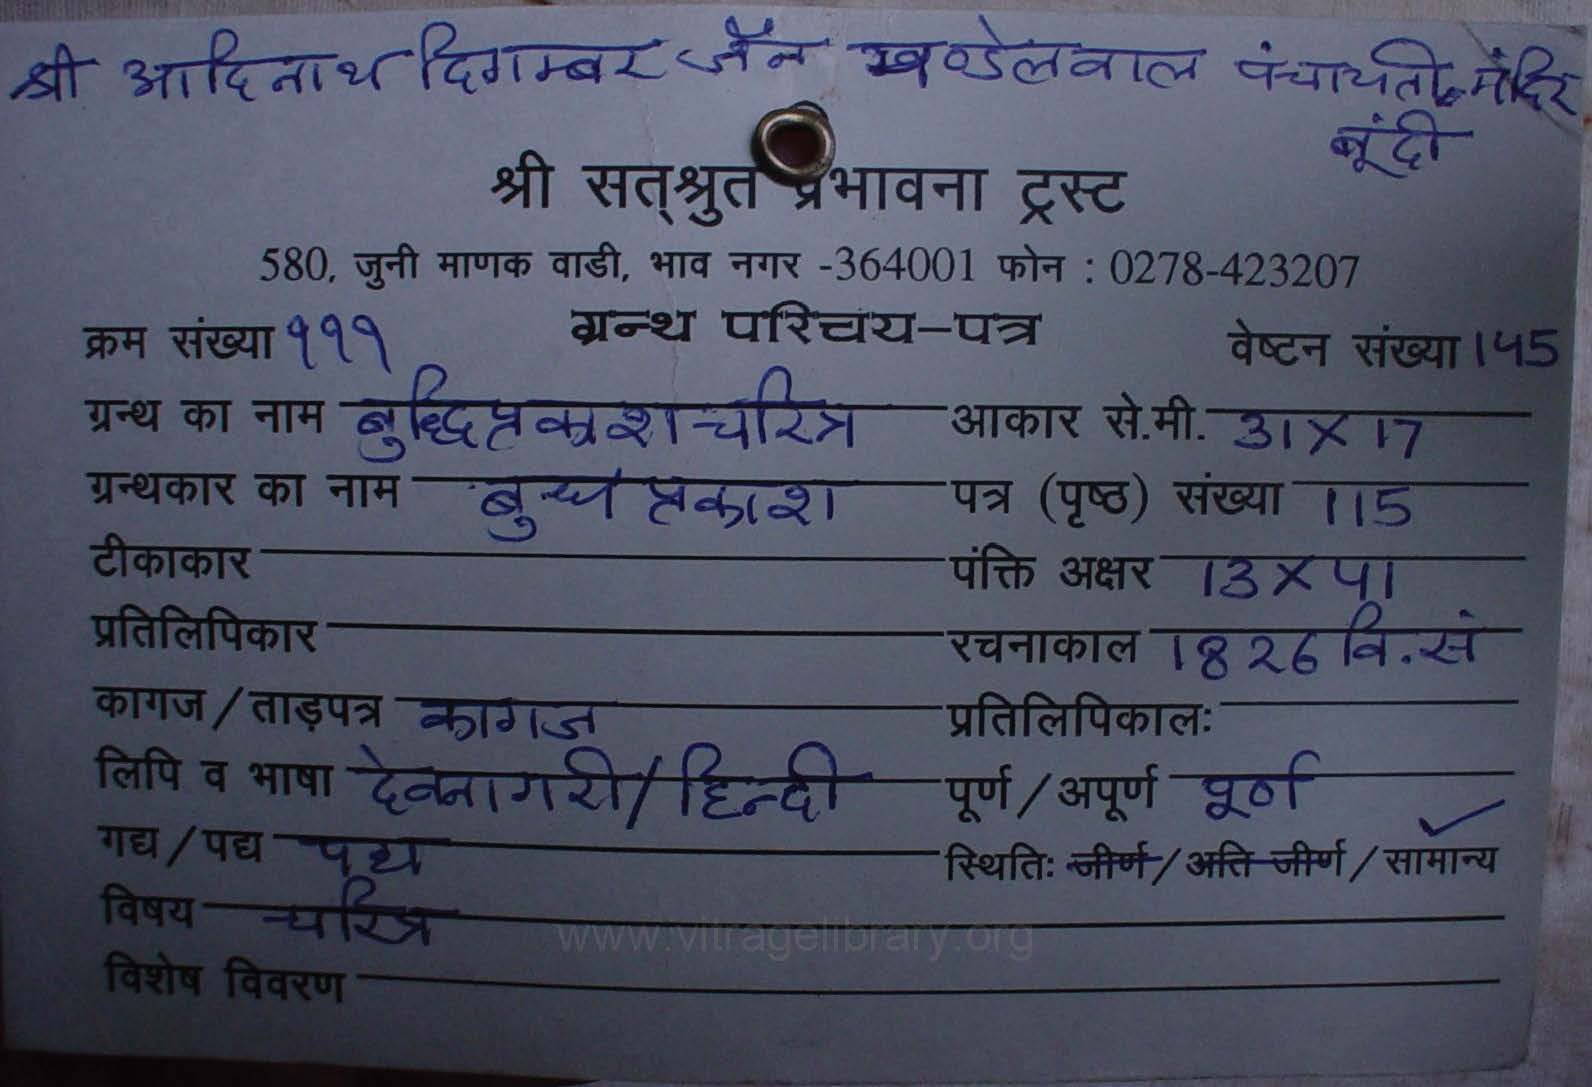 श्री आदिनाथ दिगम्बर जैन खण्डेलवाल पंचायती मंदिर
बूंदी
श्री सत्श्रुत प्रभावना ट्रस्ट
580, जुनी माणक वाडी, भाव नगर -364001 फोन : 0278-423207
क्रम संख्या १११ ग्रन्थ परिचय-पत्र वेष्टन संख्या 145
ग्रन्थ का नाम बुद्धिप्रकाश चरित्र आकार से.मी. 31 X 17
ग्रन्थकार का नाम बुन्ध प्रकाश पत्र (पृष्ठ) संख्या 115
टीकाकार पंक्ति अक्षर 13 X 41
प्रतिलिपिकार रचनाकाल 1826 वि.सं
कागज/ताड़पत्र कागज प्रतिलिपिकालः
लिपि व भाषा देवनागरी/हिन्दी पूर्ण/अपूर्ण पूर्ण
गद्य/पद्य पद्य स्थितिः जीर्ण/अति जीर्ण/सामान्य
विषय चरित्र
www.vitragelibrary.org
विशेष विवरण